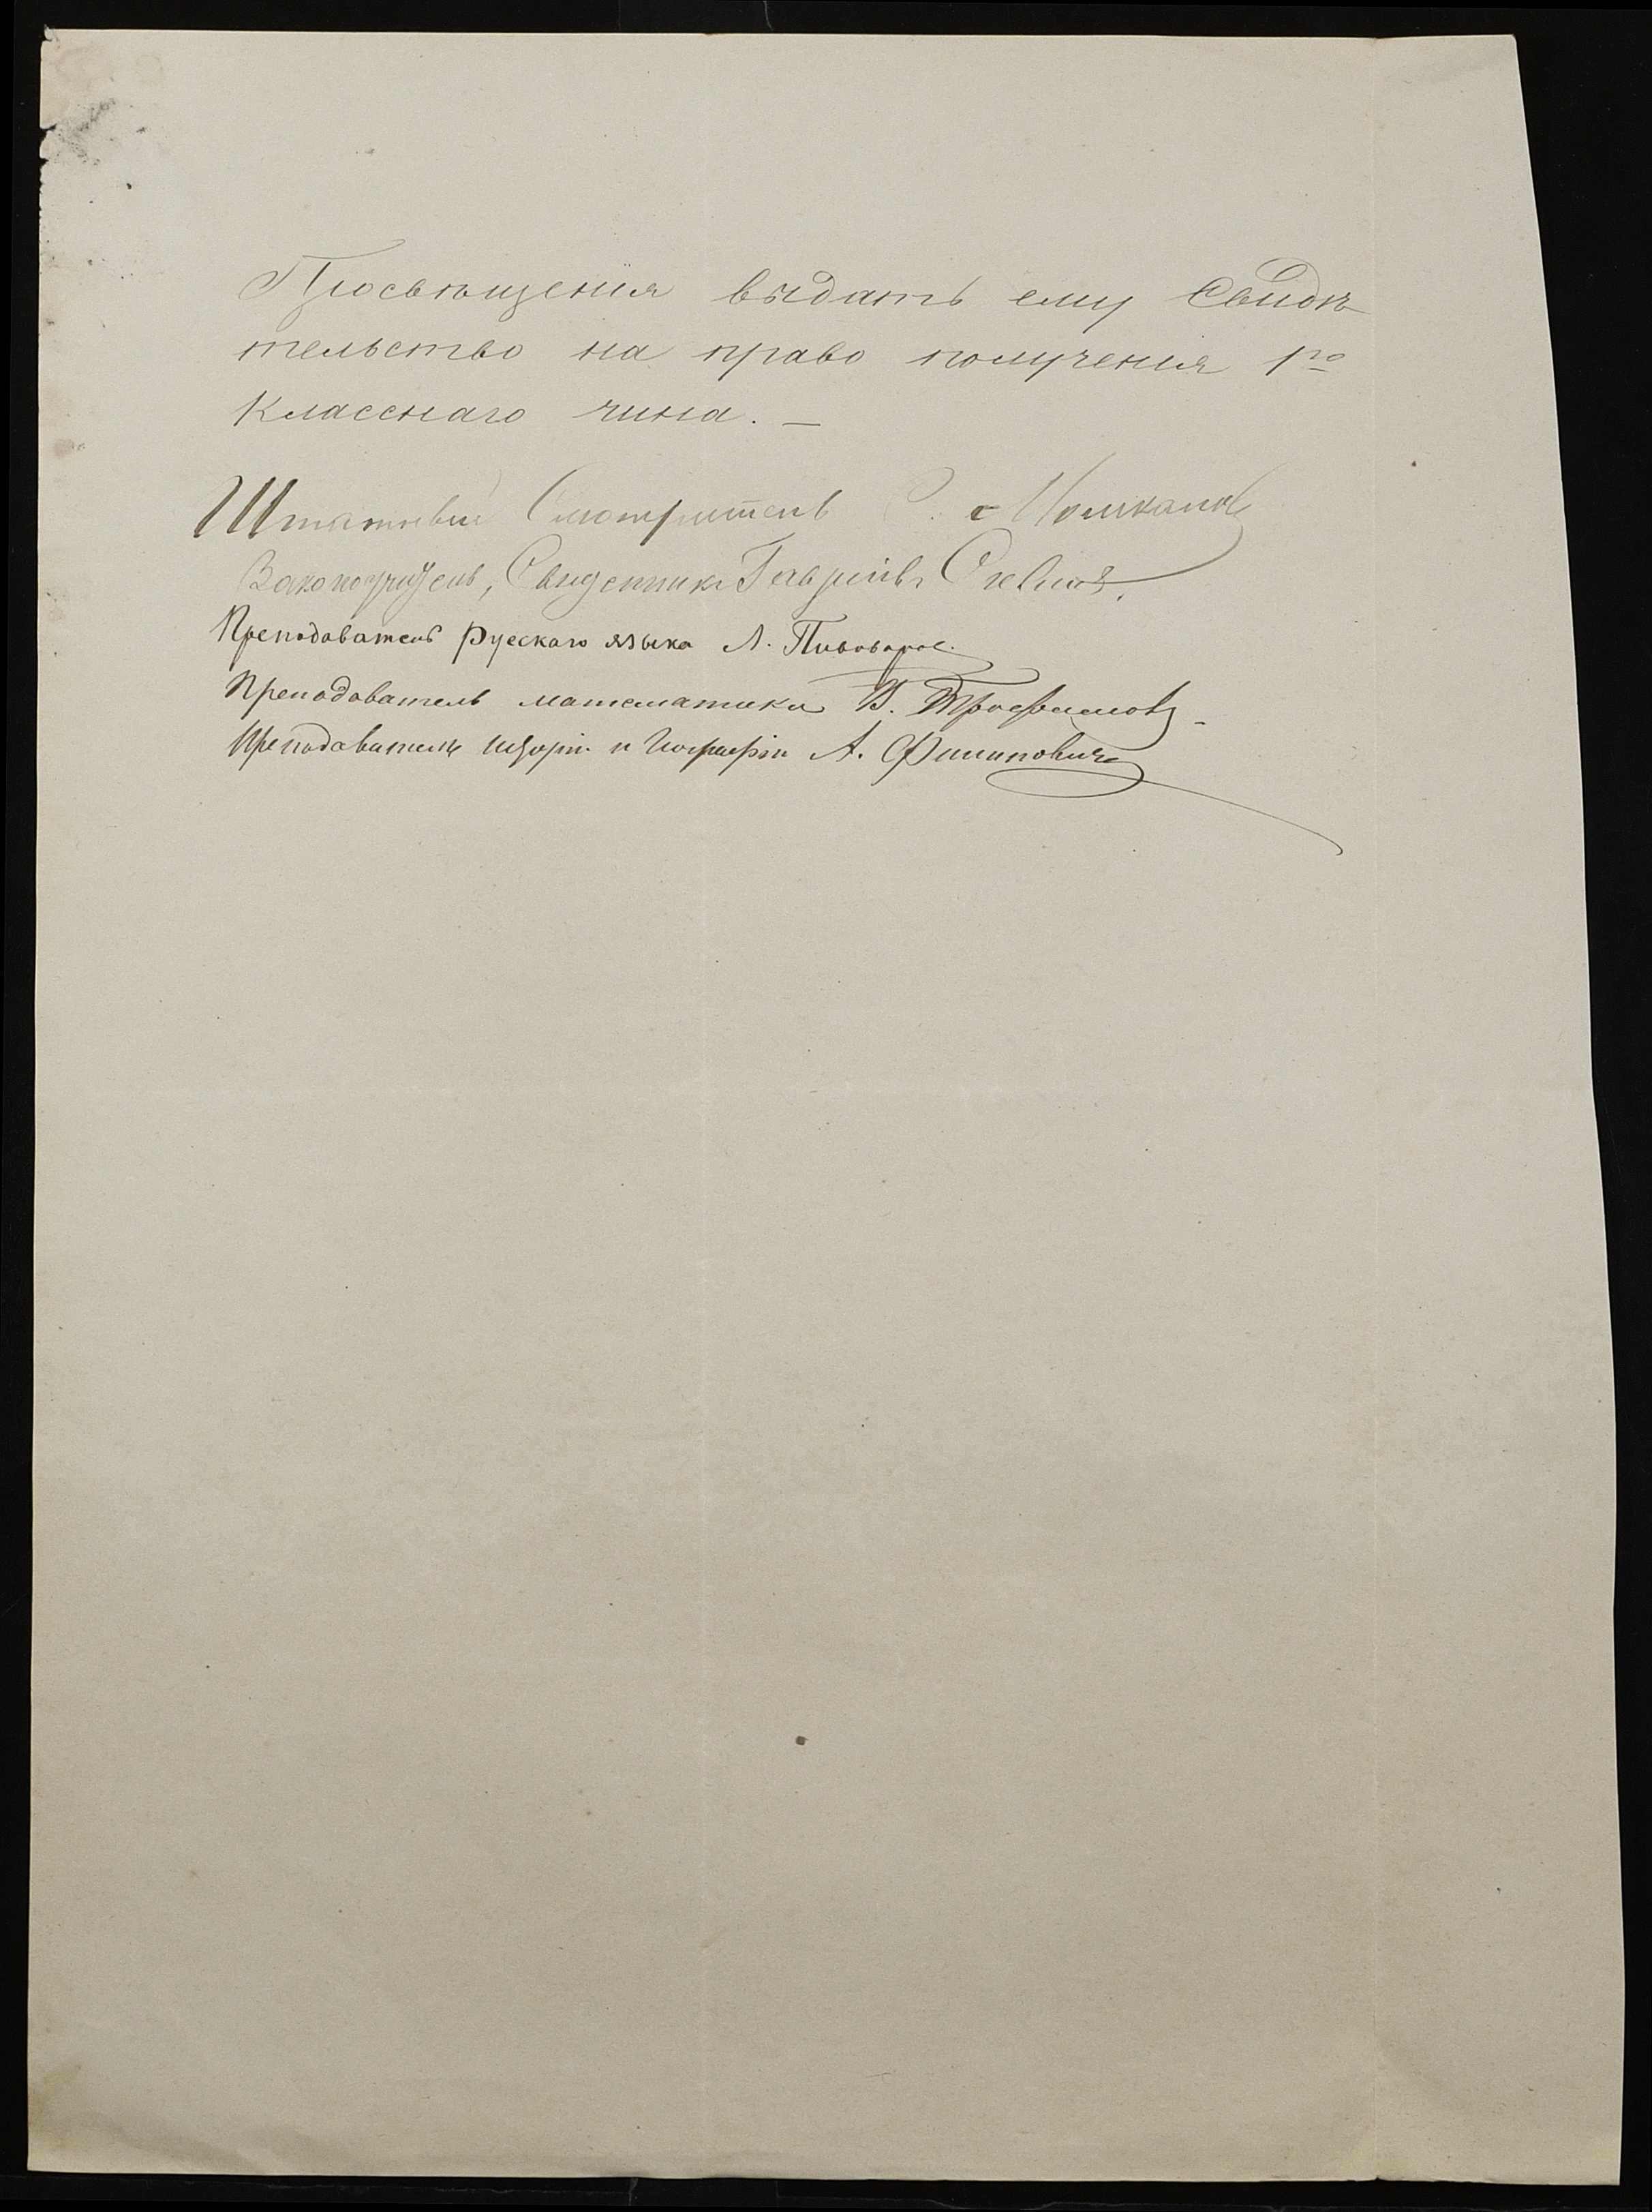 Просвѣщенія выдать ему Свидѣ
тельство на право полученія 1го
класснаго чина. —
Штатный Смотритель
Законоучитель, Священникъ Гавріилъ
Преподаватель Рускаго языка Л. Пивоваровъ.
Преподаватель математики В. Трофимовъ
Преподаватель Исторіи и Географіи А. Филиповичъ